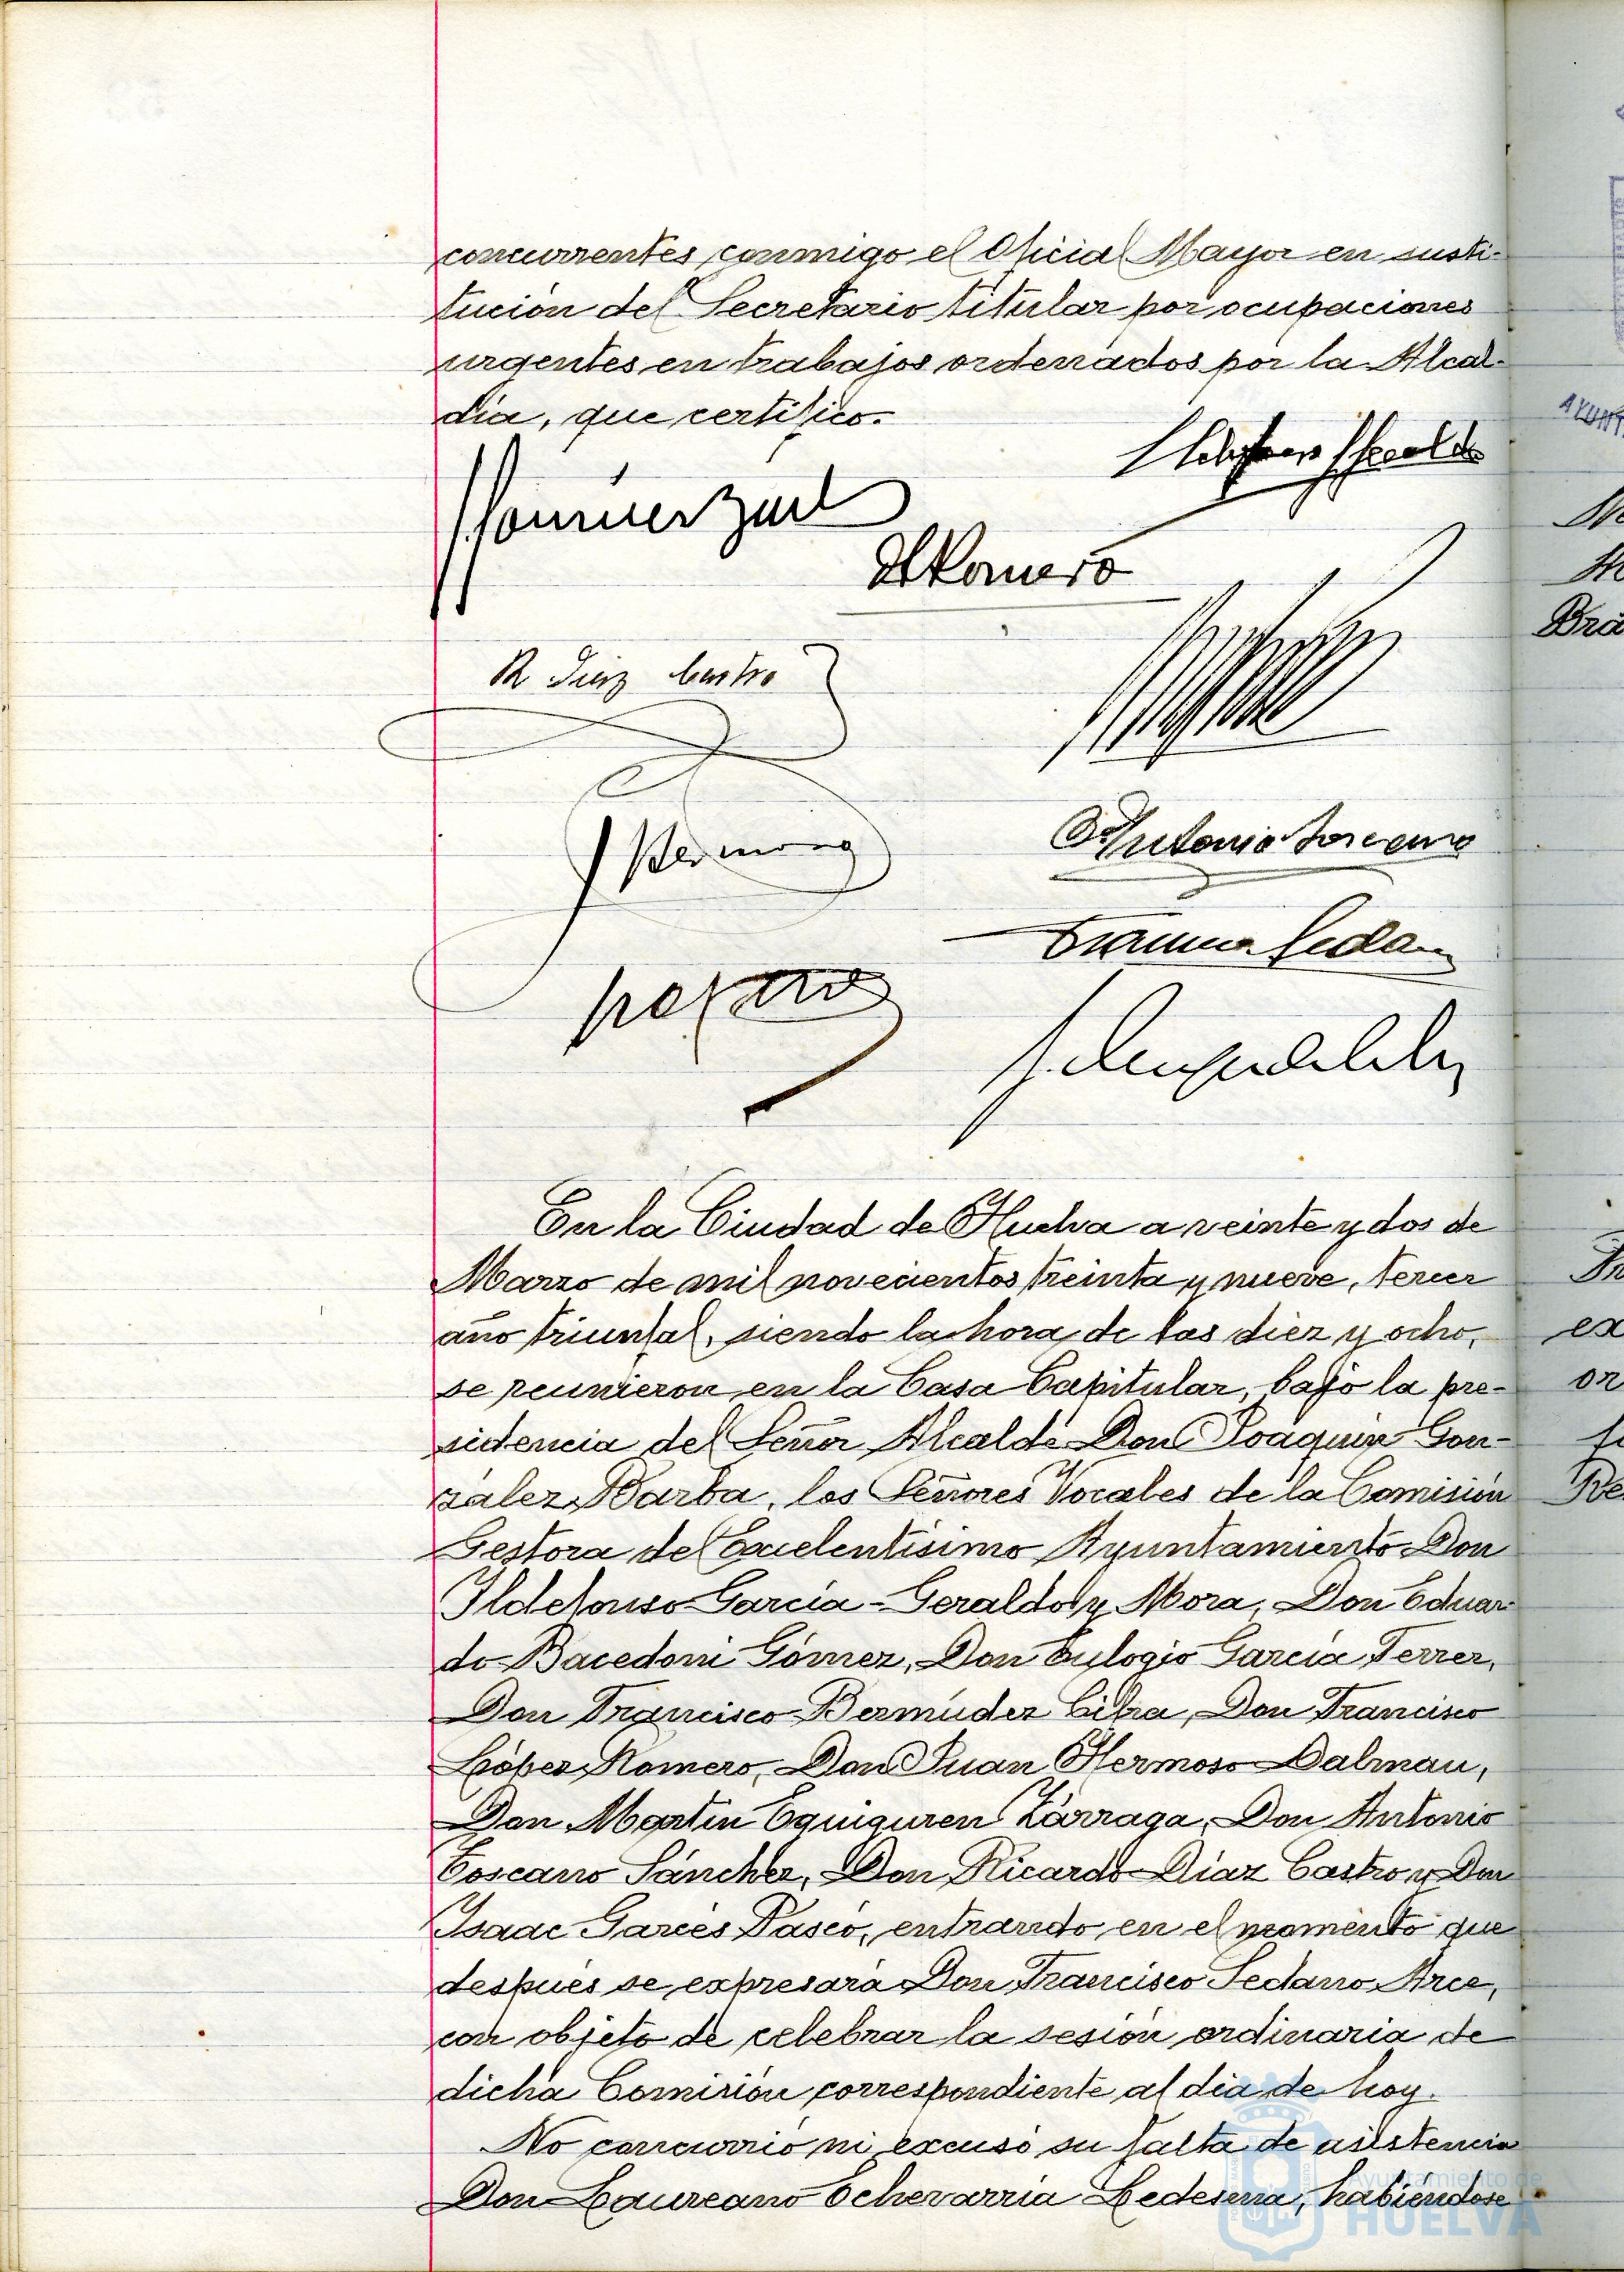 concurrentes conmigo el Oficial Mayor en susti-
tución del Secretario titular por ocupaciones
urgentes en trabajos ordenados por la Alcal-
día, que certifico.
Romero
R Diaz Castro
Antonio Toscano
En la Ciudad de Huelva a veinte y dos de
Marzo de mil novecientos treinta y nueve, tercer
año triunfal, siendo la hora de las diez y ocho,
se reunieron en la Casa Capitular, bajo la pre-
sidencia del Señor Alcalde Don Joaquín Gon-
zález Barba, los Señores Vocales de la Comisión
Gestora del Excelentísimo Ayuntamiento Don
Ildefonso García-Geraldo y Mora, Don Eduar-
do Bacedoni Gómez, Don Eulogio García Ferrer,
Don Francisco Bermúdez Cifra, Don Francisco
López Romero, Don Juan Hermoso Dalmau,
Don Martín Eguiguren Zárraga, Don Antonio
Toscano Sánchez, Don Ricardo Díaz Castro y Don
Isaac Garcés Pasco, entrando en el momento que
después se expresará Don Francisco Sedano Arce,
con objeto de celebrar la sesión ordinaria de
dicha Comisión correspondiente al día de hoy.
No concurrió ni excusó su falta de asistencia
Don Laureano Echevarría Ledesma, habiéndose
Ayuntamiento de
HUELVA